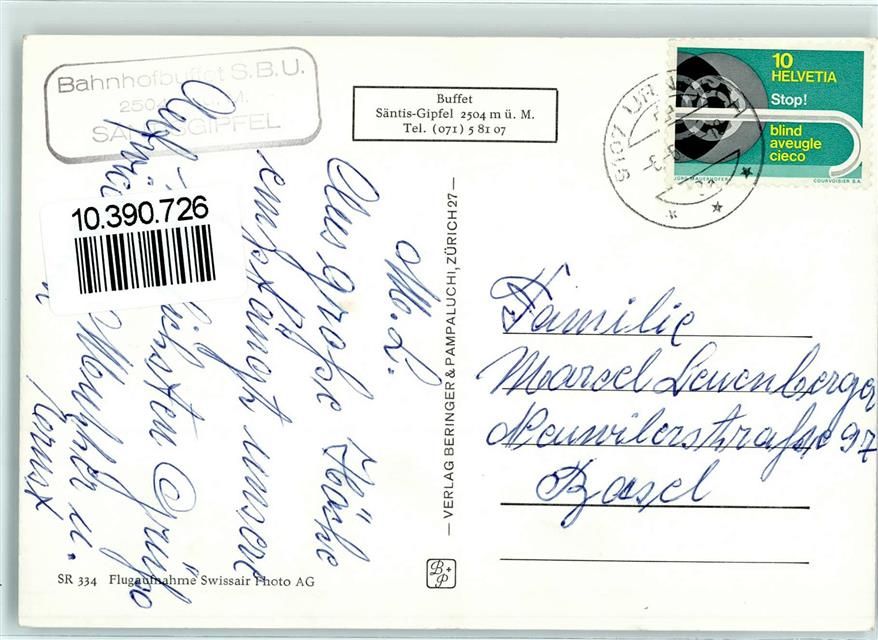 Bahnhofbuffet S.B.U.
2504 M.
SÄNTISGIPFEL
Buffet
Säntis-Gipfel 2504 m ü. M.
Tel. (071) 5 81 07
10
HELVETIA
Stop!
blind
aveugle
cieco
JÖRG MAUERHOFER
COURVOISIER S.A.
9107 URNÄSCH
10.390.726
M. L.
Aus großer Höhe
empfangt unsere
herzlichsten Grüße
u.
Ernst
— VERLAG BERINGER & PAMPALUCHI, ZÜRICH 27 —
Familie
Marcel Leuenberger
Neuwilerstraße 97
Basel
SR 334 Flugaufnahme Swissair Photo AG
B + P